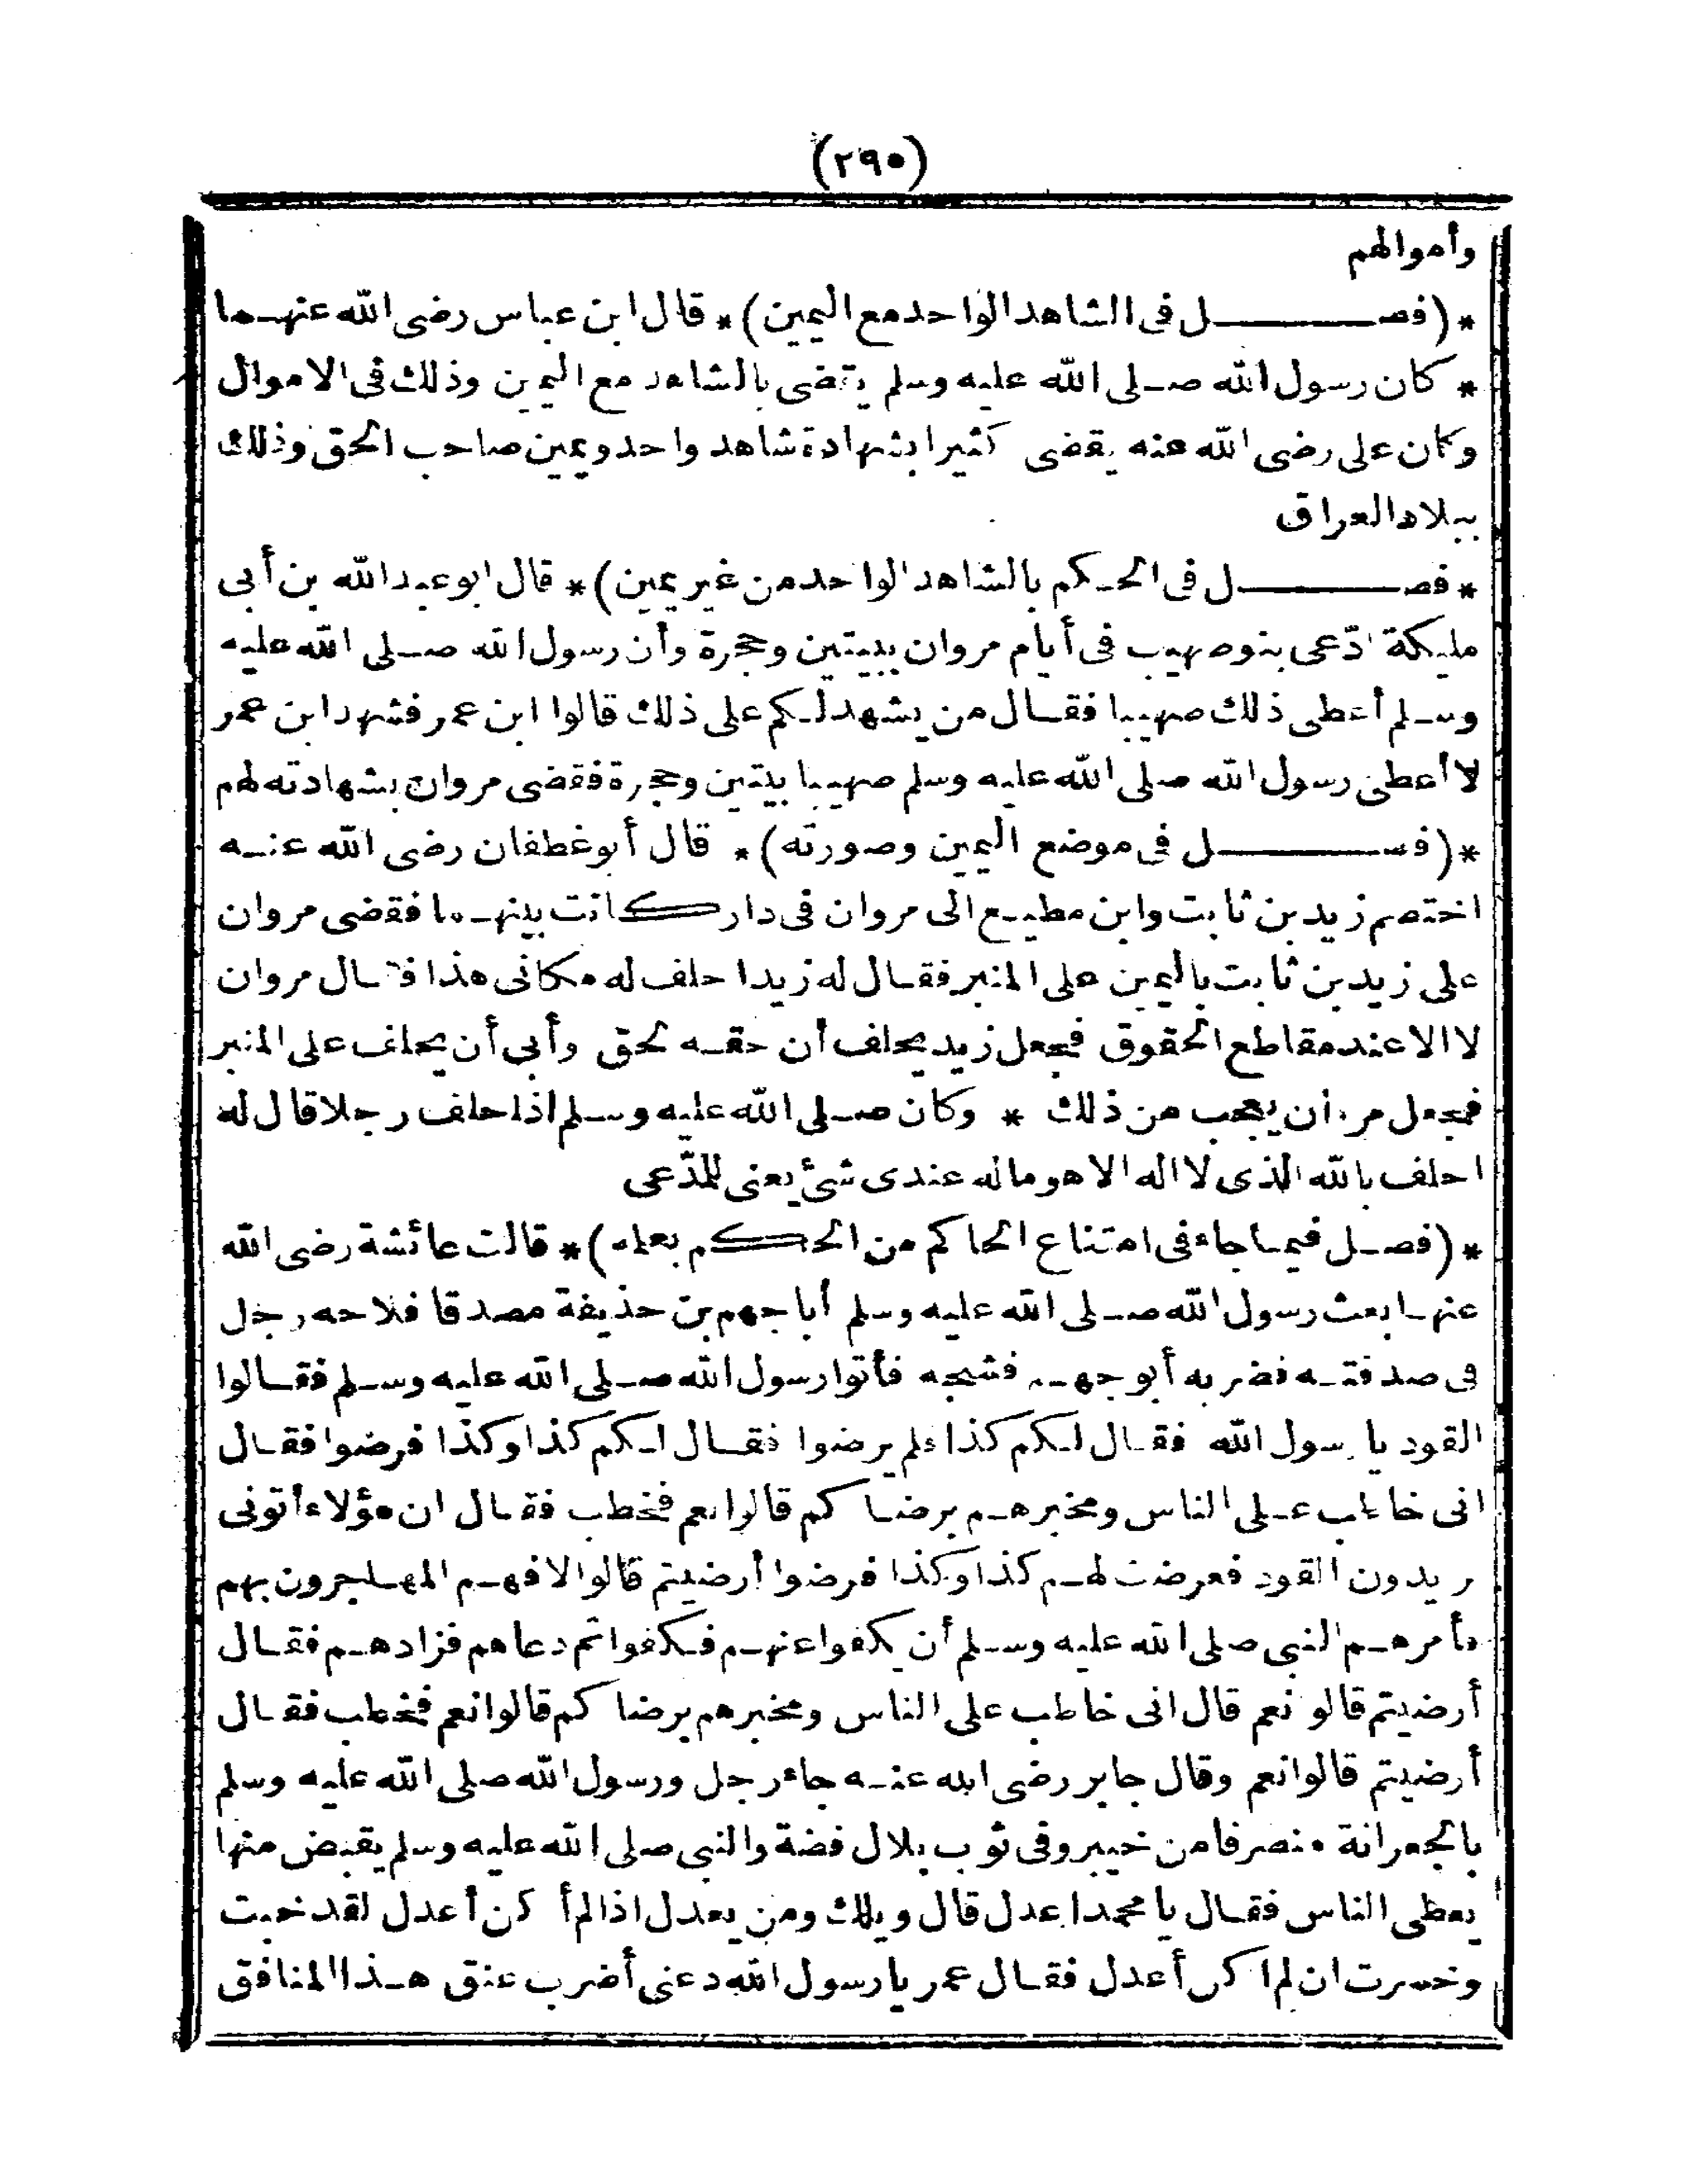 (٢٩٠)
وأموالهم
*(فصــل فى الشاهد الواحد مع اليمين)* قال ابن عباس رضى الله عنهما
* كان رسول الله صلى الله عليه وسلم يقضى بالشاهد مع اليمين وذلك فى الاموال
وكان على رضى الله عنه يقضى كثيرا بشهادة شاهد واحد ويمين صاحب الحق وذلك
ببلاد العراق
* فصــل فى الحكم بالشاهد الواحد من غير يمين)* قال ابو عبد الله بن أبى
مليكة ادّعى بنو صهيب فى أيام مروان ببيتين وحجرة وأن رسول الله صلى الله عليه
وسلم أعطى ذلك صهيبا فقال من يشهد لكم على ذلك قالوا ابن عمر فشهد ابن عمر
لا أعطى رسول الله صلى الله عليه وسلم صهيبا بيتين وحجرة فقضى مروان بشهادته لهم
*(فصــل فى موضع اليمين وصورته)* قال أبو غطفان رضى الله عنه
اختصم زيد بن ثابت وابن مطيع الى مروان فى دار كانت بينهما فقضى مروان
على زيد بن ثابت باليمين على المنبر فقال له زيد احلف له مكانى هذا فقال مروان
لا الا عند مقاطع الحقوق فجعل زيد يحلف أن حقه لحق وأبى أن يحلف على المنبر
فجعل مروان يعجب من ذلك * وكان صلى الله عليه وسلم اذا حلف رجلا قال له
احلف بالله الذى لا اله الا هو ماله عندى شئ يعنى للمدّعى
*(فصل فيما جاء فى امتناع الحاكم من الحكم بعلمه)* قالت عائشة رضى الله
عنها بعث رسول الله صلى الله عليه وسلم أبا جهم بن حذيفة مصدقا فلاحه رجل
فى صدقته فضربه أبو جهم فشجه فأتوا رسول الله صلى الله عليه وسلم فقالوا
القود يا رسول الله فقال لكم كذا فلم يرضوا فقال لكم كذا وكذا فرضوا فقال
انى خاطب على الناس ومخبرهم برضاكم قالوا نعم فخطب فقال ان هؤلاء أتونى
يريدون القود فعرضت لهم كذا وكذا فرضوا أرضيتم قالوا لا فهم المهاجرون بهم
فأمرهم النبى صلى الله عليه وسلم أن يكفوا عنهم فكفوا ثم دعاهم فزادهم فقال
أرضيتم قالو نعم قال انى خاطب على الناس ومخبرهم برضاكم قالوا نعم فخطب فقال
أرضيتم قالوا نعم وقال جابر رضى الله عنه جاء رجل ورسول الله صلى الله عليه وسلم
بالجعرانة منصرفا من خيبر وفى ثوب بلال فضة والنبى صلى الله عليه وسلم يقبض منها
يعطى الناس فقال يا محمد اعدل قال ويلك ومن يعدل اذا لم أكن أعدل لقد خبت
وخسرت ان لم اكن أعدل فقال عمر يا رسول الله دعنى أضرب عنق هذا المنافق